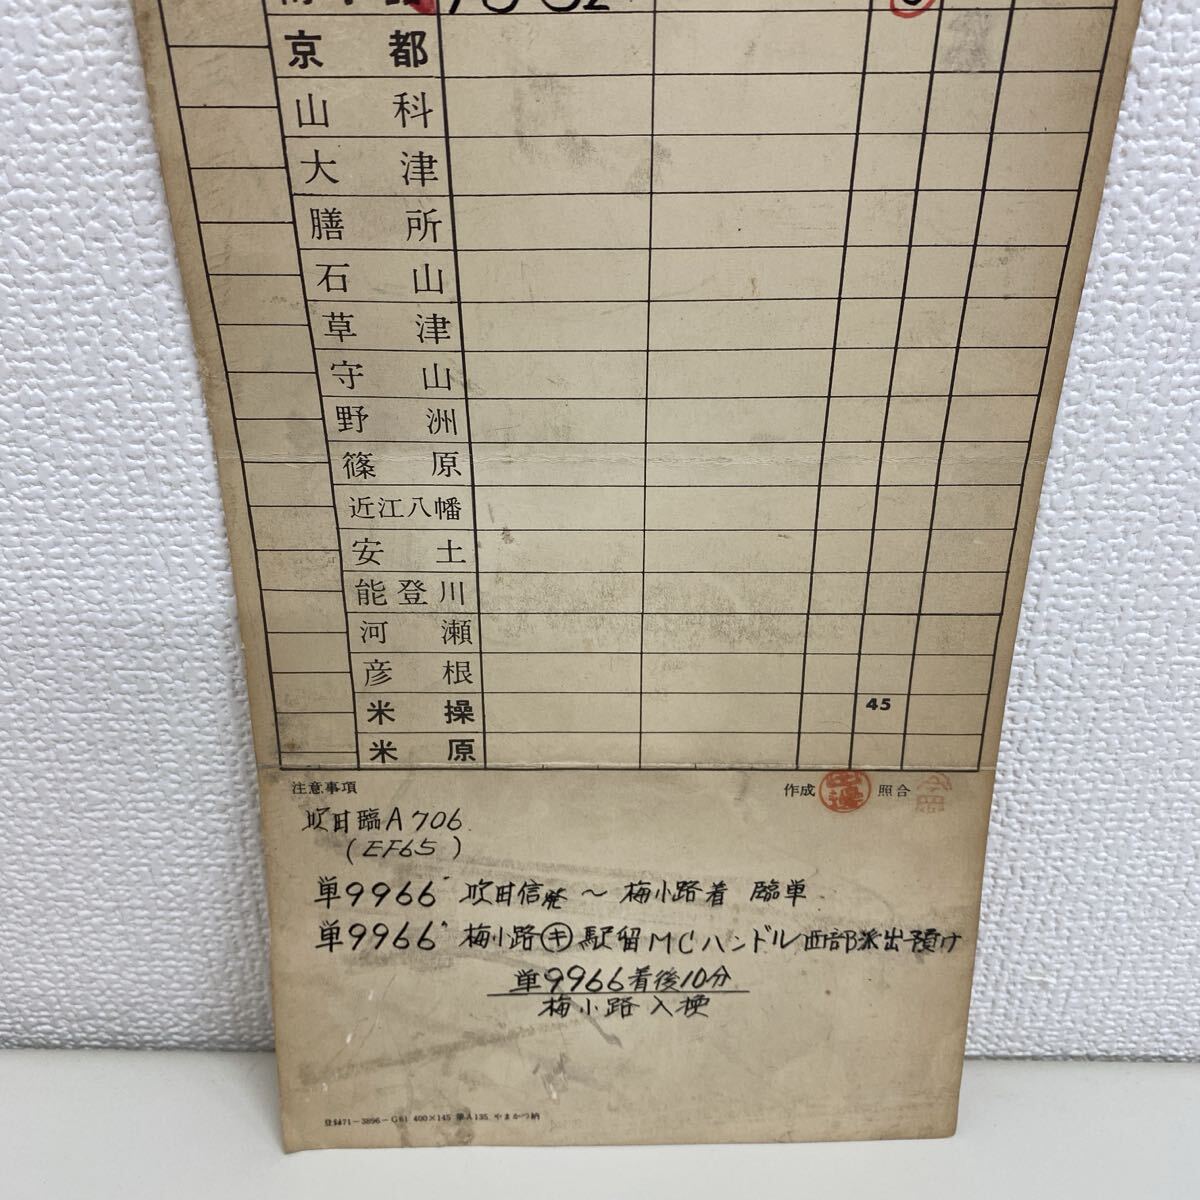 京都
山科
大津
膳所
石山
草津
守山
野洲
篠原
近江八幡
安土
能登川
河瀬
彦根
米操 45
米原
注意事項 作成 照合
吹田臨A706
(EF65)
単9966 吹田信発〜梅小路着 臨単
単9966 梅小路㋖駅留MCハンドル西部派出預け
単9966着後10分
梅小路入換
登録71-3896-G61 400×145 華A135 やまかつ納